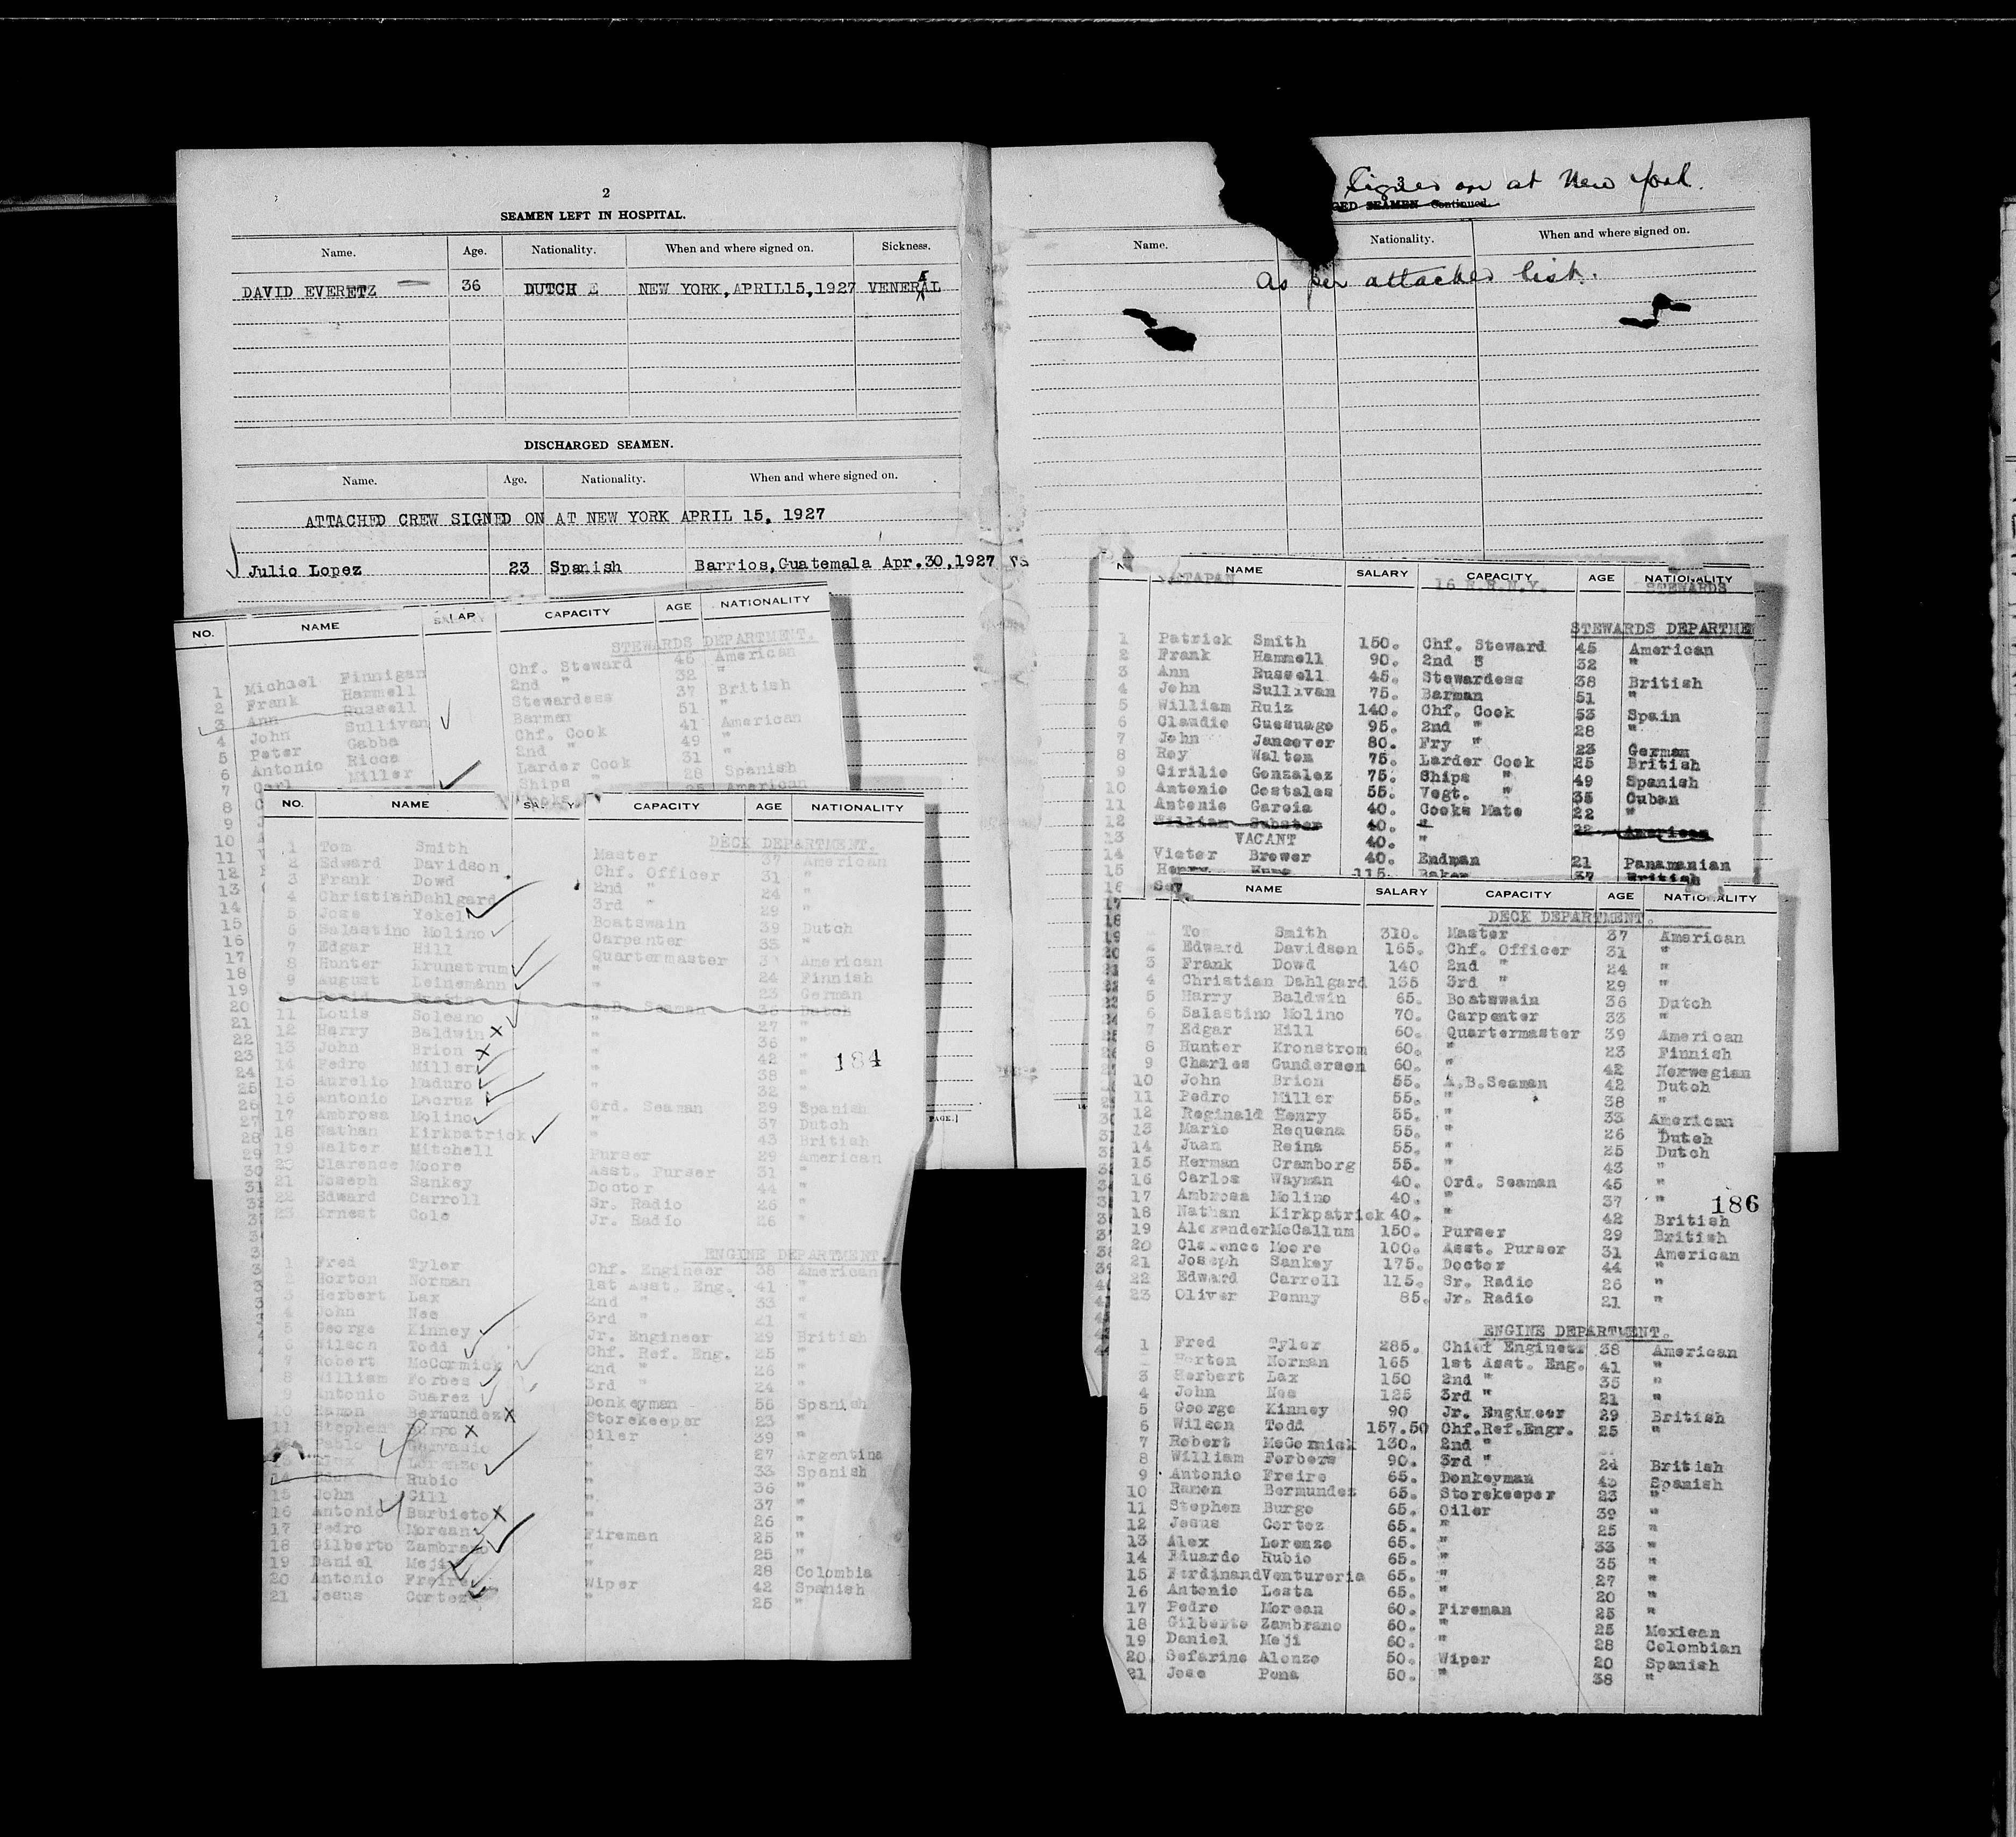 2
SEAMEN LEFT IN HOSPITAL.
Name. Age. Nationality. When and where signed on. Sickness.
DAVID EVERETZ 36 DUTCH NEW YORK,APRIL15,1927 VENERAL
DISCHARGED SEAMEN.
Name. Age. Nationality. When and where signed on.
ATTACHED CREW SIGNED ON AT NEW YORK APRIL 15, 1927
Julio Lopez 23 Spanish Barrios,Guatemala Apr.30,1927
NO. NAME CAPACITY AGE NATIONALITY
STEWARDS DEPARTMENT.
1 Michael Finnigan Chf. Steward 46 American
2 Frank Hammell 2nd " 32 "
3 Ann Russell Stewardess 37 British
4 John Sullivan Barman 51 "
5 Peter Gabba Chf. Cook 41 American
6 Antonio Ricca 2nd " 49 "
7 Carl Miller Larder Cook 31 "
8 Ships " 28 Spanish
9
10
11
12
13
14
15
16
17
18
19
20
21
22
23
24
25
26
27
28
29
30
31
NO. NAME CAPACITY AGE NATIONALITY
DECK DEPARTMENT.
1 Tom Smith Master 37 American
2 Edward Davidson Chf. Officer 31 "
3 Frank Dowd 2nd " 24 "
4 Christian Dahlgard 3rd " 29 "
5 Jose Yekel Boatswain 39 Dutch
6 Salastino Molino Carpenter 33 "
7 Edgar Hill Quartermaster American
8 Hunter Krunstrum " 24 Finnish
9 August Leinemann " 23 German
Seaman 36 Dutch
11 Louis Soleano " 27 "
12 Harry Baldwin " 36 "
13 John Brion " 42 "
14 Pedro Miller " 38 "
15 Aurelio Maduro " 32 "
16 Antonio Lacruz Ord. Seaman 29 Spanish
17 Ambrosa Molino " 37 Dutch
18 Nathan Kirkpatrick " 43 British
19 Walter Mitchell Purser 29 American
20 Clarence Moore Asst. Purser 31 "
21 Joseph Sankey Doctor 44 "
22 Edward Carroll Sr. Radio 26 "
23 Ernest Cole Jr. Radio 26 "
184
ENGINE DEPARTMENT.
1 Fred Tyler Chf. Engineer 38 American
2 Horton Norman 1st Asst. Eng. 41 "
3 Herbert Lax 2nd " 33 "
4 John Nee 3rd " 21 "
5 George Kinney Jr. Engineer 29 British
6 Wilson Todd Chf. Ref. Eng. 25 "
7 Robert McCormick 2nd " 26 "
8 William Forbes 3rd " 24 "
9 Antonio Suarez Donkeyman 56 Spanish
10 Ramon Bermundez Storekeeper 23 "
11 Stephen Burgo Oiler 39 "
12 Pablo Gervasio " 27 Argentina
13 Alex Lorenzo " 33 Spanish
14 Rubio " 36 "
15 John Gill " 37 "
16 Antonio Barbieto " 26 "
17 Pedro Morean Fireman 25 "
18 Gilberto Zambrano " 25 "
19 Daniel Meji " 28 Colombia
20 Antonio Freire Wiper 42 Spanish
21 Jesus Cortez " 25 "
PAGE.]
Signed on at New York.
SEAMEN Continued.
Name. Nationality. When and where signed on.
As per attached list.
NAME SALARY CAPACITY AGE NATIONALITY
16 N.R.N.Y. STEWARDS
STEWARDS DEPARTME
1 Patrick Smith 150. Chf. Steward 45 American
2 Frank Hammell 90. 2nd " 32 "
3 Ann Russell 45. Stewardess 38 British
4 John Sullivan 75. Barman 51 "
5 William Ruiz 140. Chf. Cook 53 Spain
6 Claudio Cuesuago 95. 2nd " 28 "
7 John Jancover 80. Fry " 23 German
8 Roy Walton 75. Larder Cook 25 British
9 Girilio Gonzalez 75. Ships " 49 Spanish
10 Antonio Costales 55. Vegt. " 35 Cuban
11 Antonio Garcia 40. Cooks Mate 22 "
12 William Subster 40. " 22 American
13 VACANT 40. "
14 Victor Brewer 40. Endman 21 Panamanian
15 Henry 115. Baker 37 British
16
17
18
19
20
NAME SALARY CAPACITY AGE NATIONALITY
DECK DEPARTMENT.
Tom Smith 310. Master 37 American
2 Edward Davidson 165. Chf. Officer 31 "
3 Frank Dowd 140 2nd " 24 "
4 Christian Dahlgard 135 3rd " 29 "
5 Harry Baldwin 65. Boatswain 36 Dutch
6 Salastino Molino 70. Carpenter 33 "
7 Edgar Hill 60. Quartermaster 39 American
8 Hunter Kronstrom 60. " 23 Finnish
9 Charles Gundersen 60. " 42 Norwegian
10 John Brion 55. A.B.Seaman 42 Dutch
11 Pedro Miller 55. " 38 "
12 Reginald Henry 55. " 33 American
13 Mario Requena 55. " 26 Dutch
14 Juan Reina 55. " 25 Dutch
15 Herman Cramborg 55. " 43 "
16 Carlos Wayman 40. Ord. Seaman 45 "
17 Ambrosa Molino 40. " 37 "
18 Nathan Kirkpatrick 40. " 42 British
19 Alexander McCallum 150. Purser 29 British
20 Clarence Moore 100. Asst. Purser 31 American
21 Joseph Sankey 175. Doctor 44 "
22 Edward Carrell 115. Sr. Radio 26 "
23 Oliver Penny 85. Jr. Radio 21 "
186
ENGINE DEPARTMENT.
1 Fred Tyler 285. Chief Engineer 38 American
Horton Norman 165 1st Asst. Eng. 41 "
3 Herbert Lax 150 2nd " 35 "
4 John Nee 125 3rd " 21 "
5 George Kinney 90 Jr. Engineer 29 British
6 Wilson Todd 157.50 Chf.Ref.Engr. 25 "
7 Robert McCormick 130. 2nd "
8 William Forbers 90. 3rd " 24 British
9 Antonio Freire 65. Donkeyman 43 Spanish
10 Ramon Bermundez 65. Storekeeper 23 "
11 Stephen Burgo 65. Oiler 39 "
12 Jesus Cortez 65. " 25 "
13 Alex Lorenzo 65. " 33 "
14 Eduardo Rubio 65. " 35 "
15 Ferdinand Ventureria 65. " 27 "
16 Antonio Lesta 65. " 20 "
17 Pedro Morean 60. Fireman 25 "
18 Gilberto Zambrano 60. " 25 Mexican
19 Daniel Meji 60. " 28 Colombian
20 Sefarino Alonzo 50. Wiper 20 Spanish
21 Jose Pena 50. " 38 "